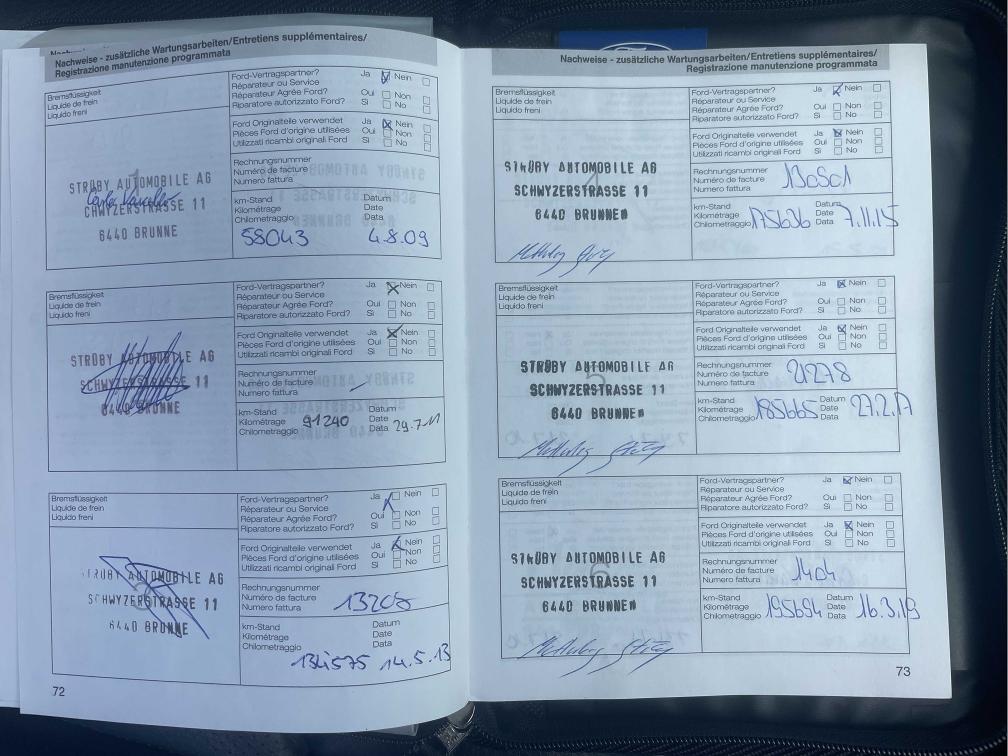 Nachweise - zusätzliche Wartungsarbeiten/Entretiens supplémentaires/
Registrazione manutenzione programmata
Bremsflüssigkeit
Liquide de frein
Liquido freni
STRÜBY AUTOMOBILE AG
CHWYZERSTRASSE 11
6440 BRUNNE
Ford-Vertragspartner? Ja Nein
Réparateur ou Service
Réparateur Agrée Ford? Oui Non
Riparatore autorizzato Ford? Si No
Ford Originalteile verwendet Ja Nein
Pièces Ford d'origine utilisées Oui Non
Utilizzati ricambi originali Ford Si No
Rechnungsnummer
Numéro de facture
Numero fattura
km-Stand Datum
Kilométrage Date
Chilometraggio Data
58043 4.8.09
Bremsflüssigkeit
Liquide de frein
Liquido freni
STRÜBY AUTOMOBILE AG
SCHWYZERSTRASSE 11
6440 BRUNNE
Ford-Vertragspartner? Ja Nein
Réparateur ou Service
Réparateur Agrée Ford? Oui Non
Riparatore autorizzato Ford? Si No
Ford Originalteile verwendet Ja Nein
Pièces Ford d'origine utilisées Oui Non
Utilizzati ricambi originali Ford Si No
Rechnungsnummer
Numéro de facture
Numero fattura
km-Stand Datum
Kilométrage 91240 Date
Chilometraggio Data 29.7.11
Bremsflüssigkeit
Liquide de frein
Liquido freni
STRÜBY AUTOMOBILE AG
SCHWYZERSTRASSE 11
6440 BRUNNE
Ford-Vertragspartner? Ja Nein
Réparateur ou Service
Réparateur Agrée Ford? Oui Non
Riparatore autorizzato Ford? Si No
Ford Originalteile verwendet Ja Nein
Pièces Ford d'origine utilisées Oui Non
Utilizzati ricambi originali Ford Si No
Rechnungsnummer
Numéro de facture 13208
Numero fattura
km-Stand Datum
Kilométrage Date
Chilometraggio Data
134575 14.5.13
72
Nachweise - zusätzliche Wartungsarbeiten/Entretiens supplémentaires/
Registrazione manutenzione programmata
Bremsflüssigkeit
Liquide de frein
Liquido freni
STRÜBY AUTOMOBILE AG
SCHWYZERSTRASSE 11
6440 BRUNNEN
Ford-Vertragspartner? Ja Nein
Réparateur ou Service
Réparateur Agrée Ford? Oui Non
Riparatore autorizzato Ford? Si No
Ford Originalteile verwendet Ja Nein
Pièces Ford d'origine utilisées Oui Non
Utilizzati ricambi originali Ford Si No
Rechnungsnummer
Numéro de facture 130501
Numero fattura
km-Stand Datum
Kilométrage Date
Chilometraggio 175636 Data 7.11.15
Bremsflüssigkeit
Liquide de frein
Liquido freni
STRÜBY AUTOMOBILE AG
SCHWYZERSTRASSE 11
6440 BRUNNEN
Ford-Vertragspartner? Ja Nein
Réparateur ou Service
Réparateur Agrée Ford? Oui Non
Riparatore autorizzato Ford? Si No
Ford Originalteile verwendet Ja Nein
Pièces Ford d'origine utilisées Oui Non
Utilizzati ricambi originali Ford Si No
Rechnungsnummer
Numéro de facture 21278
Numero fattura
km-Stand Datum
Kilométrage 185665 Date 27.2.17
Chilometraggio Data
Bremsflüssigkeit
Liquide de frein
Liquido freni
STRÜBY AUTOMOBILE AG
SCHWYZERSTRASSE 11
6440 BRUNNEN
Ford-Vertragspartner? Ja Nein
Réparateur ou Service
Réparateur Agrée Ford? Oui Non
Riparatore autorizzato Ford? Si No
Ford Originalteile verwendet Ja Nein
Pièces Ford d'origine utilisées Oui Non
Utilizzati ricambi originali Ford Si No
Rechnungsnummer
Numéro de facture 1404
Numero fattura
km-Stand Datum
Kilométrage 195694 Date 16.3.19
Chilometraggio Data
73